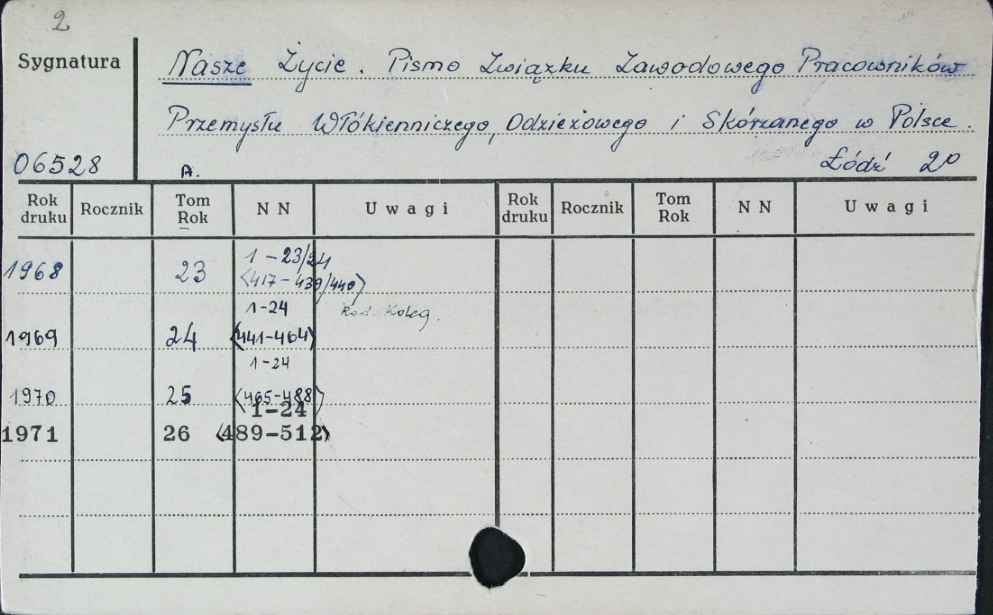 2
Sygnatura
Nasze Życie. Pismo Związku Zawodowego Pracowników
Przemysłu Włókienniczego, Odzieżowego i Skórzanego w Polsce.
06528 A. Łódź 2º
Rok druku Rocznik Tom Rok NN Uwagi Rok druku Rocznik Tom Rok NN Uwagi
1968 23 1-23/24
<417-439/440>
Red. Koleg.
1969 24 1-24
<441-464>
1970 25 1-24
<465-488>
1971 26 1-24
<489-512>